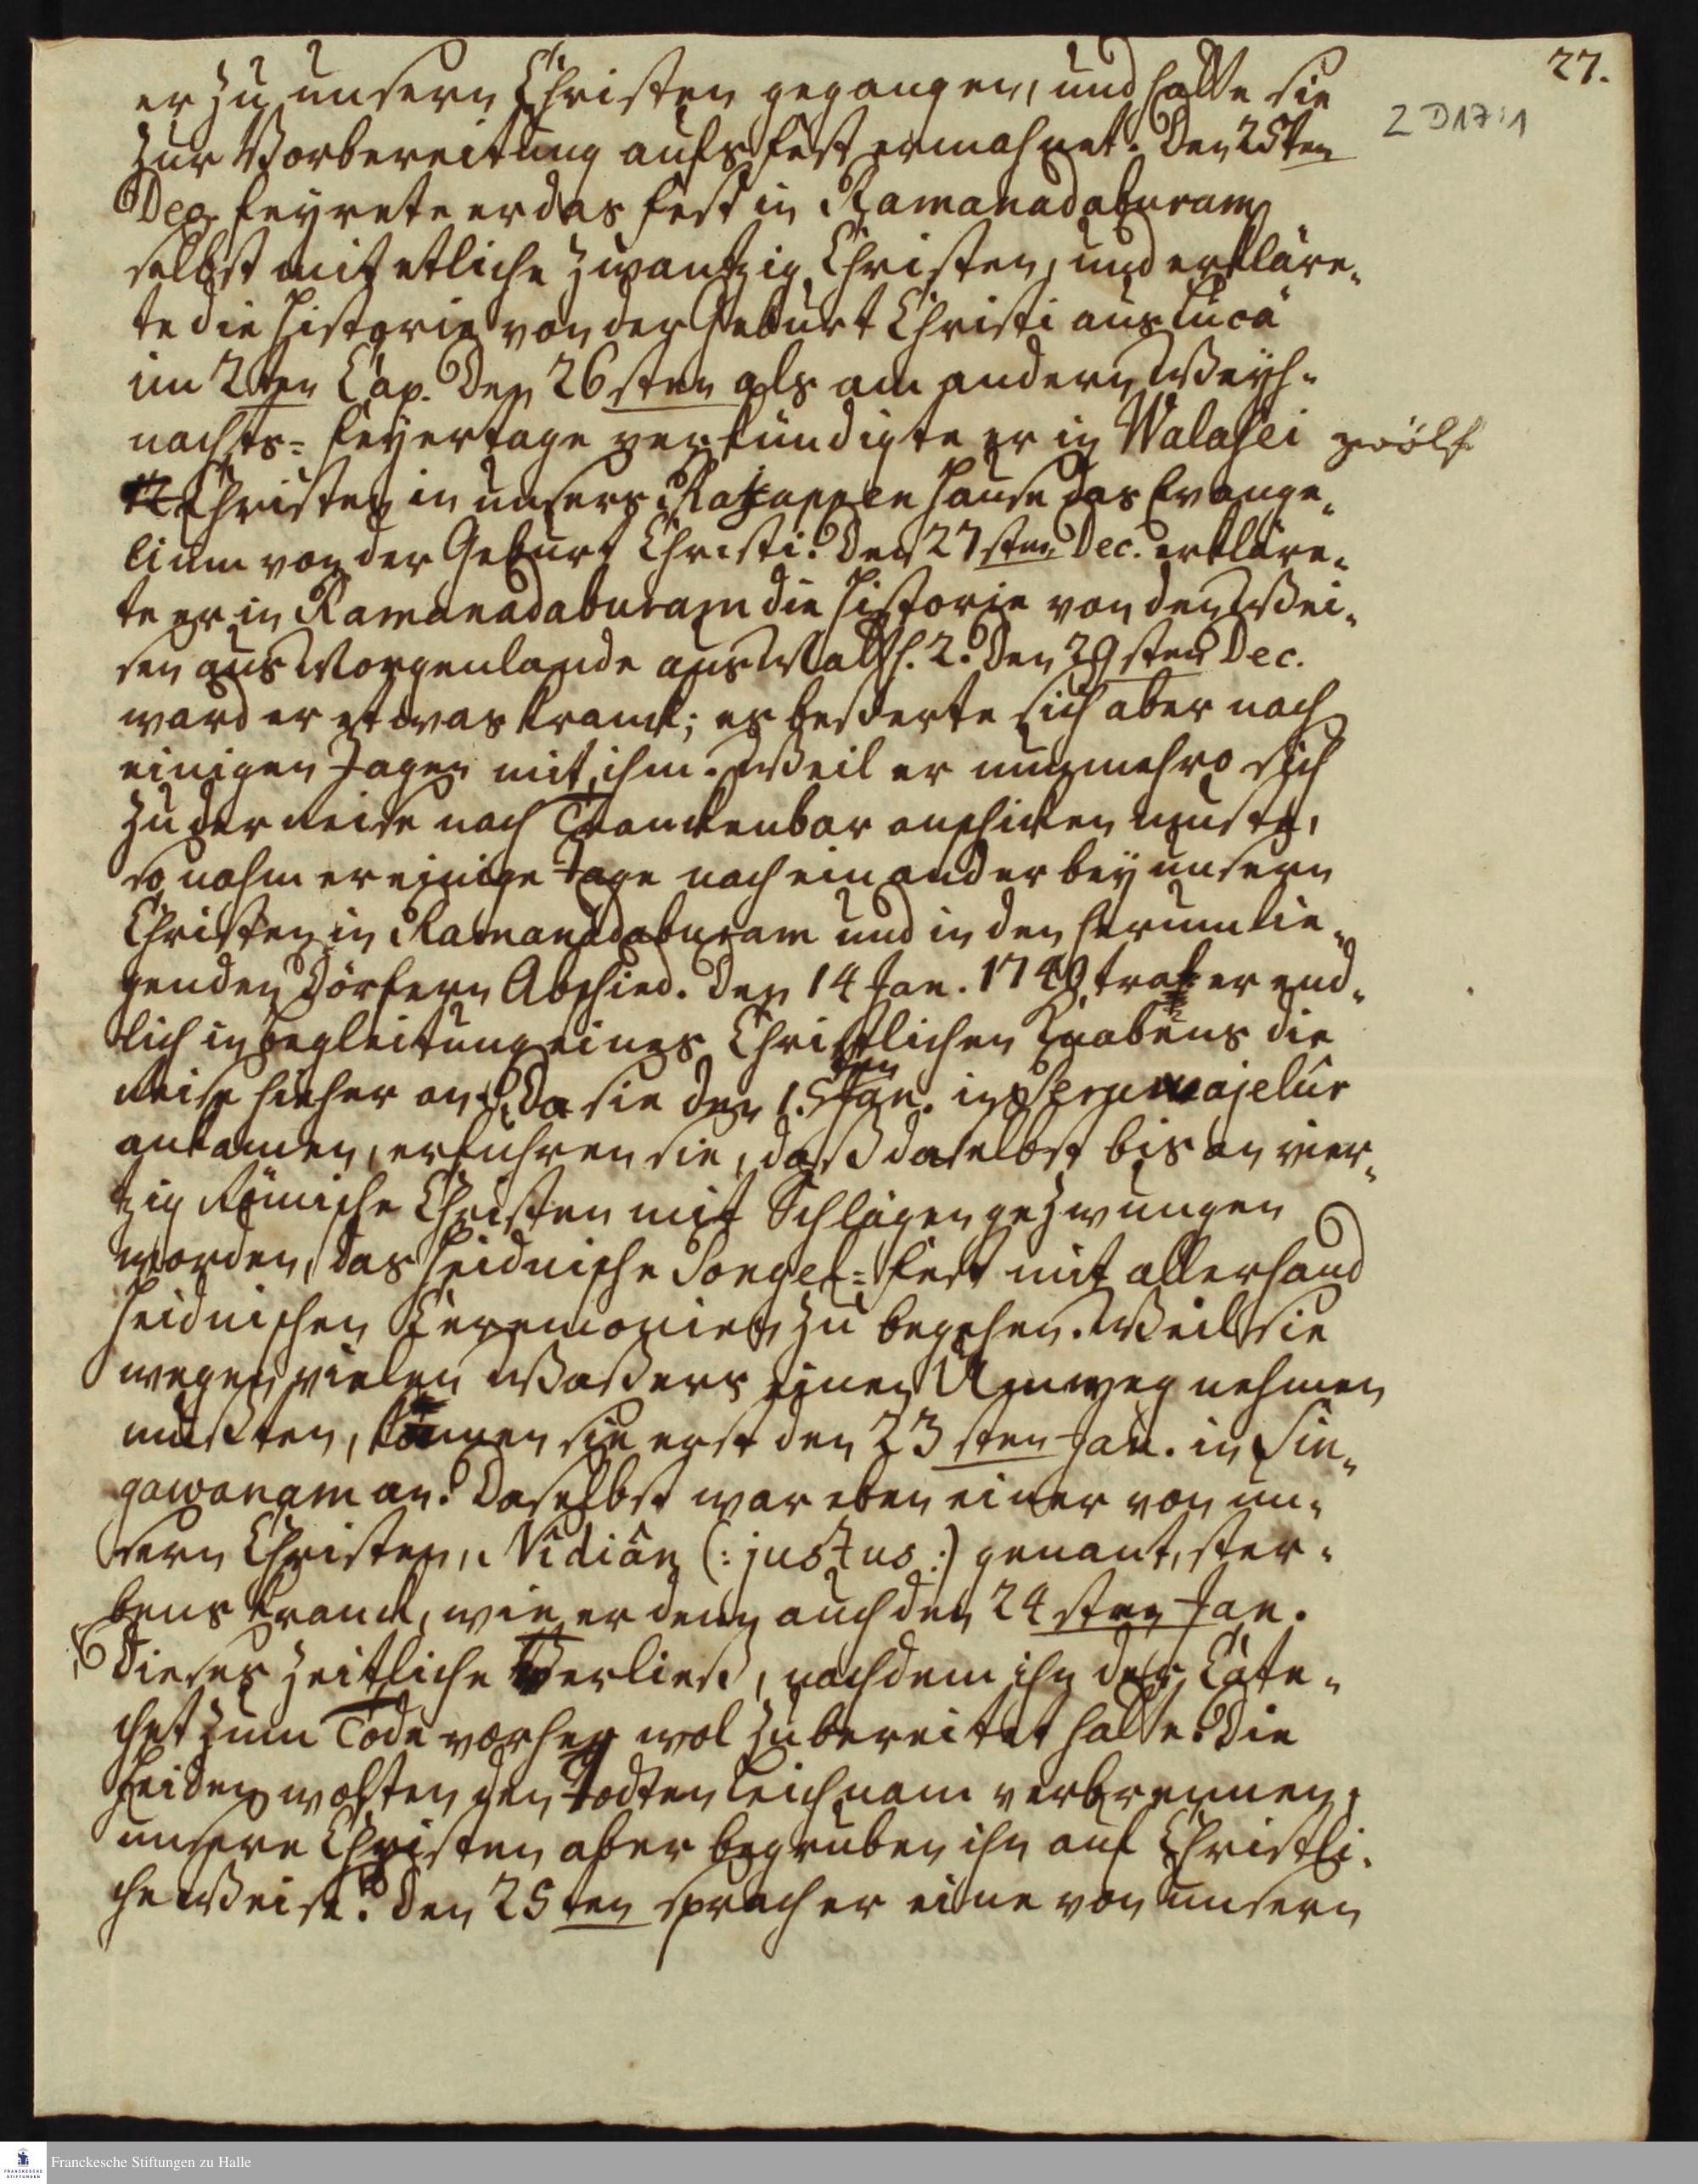 27.
2 D17:1
er zu unsern Christen gegangen, und hatte sie
zur Vorbereitung aufs Fest ermahnet. Den 25ten
Dec. feyrete er das Fest in Ramanadaburam
selbst mit etliche zwantzig Christen, und erkläre-
te die Historie von der Geburt Christi aus Lucä
im 2ten Cap. Den 26sten als am andern Weyh-
nachts-Feyertage verkündigte er in Walasei zwölf
12 Christen in unsers Rajappen Hause das Evange-
lium von der Geburt Christi. Den 27sten Dec. erkläre-
te er in Ramanadaburam die Historie von den Wei-
sen aus Morgenlande aus Matth. 2. Den 29sten Dec.
ward er etwas kranck; es besserte sich aber nach
einigen Tagen mit ihm. Weil er nunmehro sich
zu der Reise nach Tranckenbar anschicken muste,
so nahm er einige Tage nach einander bey unsern
Christen in Ramanadaburam und in den herumlie-
genden Dörfern Abschied. Den 14 Jan. 1740 trat er end-
lich in Begleitung eines Christlichen Knabens die
Reise hieher an. Da sie den 15ten Jan. in Perumajelûr
ankamen, erfuhren sie, daß daselbst bis an vier-
zig Römische Christen mit Schlägen gezwungen
worden, das Heidnische Pongel-Fest mit allerhand
Heidnischen Ceremonien zu begehen. Weil sie
wegen vielen Waßers einen Umweg nehmen
mußten, kamen sie erst den 23sten Jan. in Sin-
gawanam an. Daselbst war eben einer von un-
sern Christen, Nidiân (: justus :) genant, ster-
bens kranck, wie er denn auch den 24sten Jan.
dieses Zeitliche verließ, nachdem ihn der Cate-
chet zum Tode vorher wol zubereitet hatte. Die
Heiden wolten den todten Leichnam verbrennen,
unsere Christen aber begruben ihn auf Christli-
che Weise. Den 25ten sprach er eine von unsern
Franckesche Stiftungen zu Halle